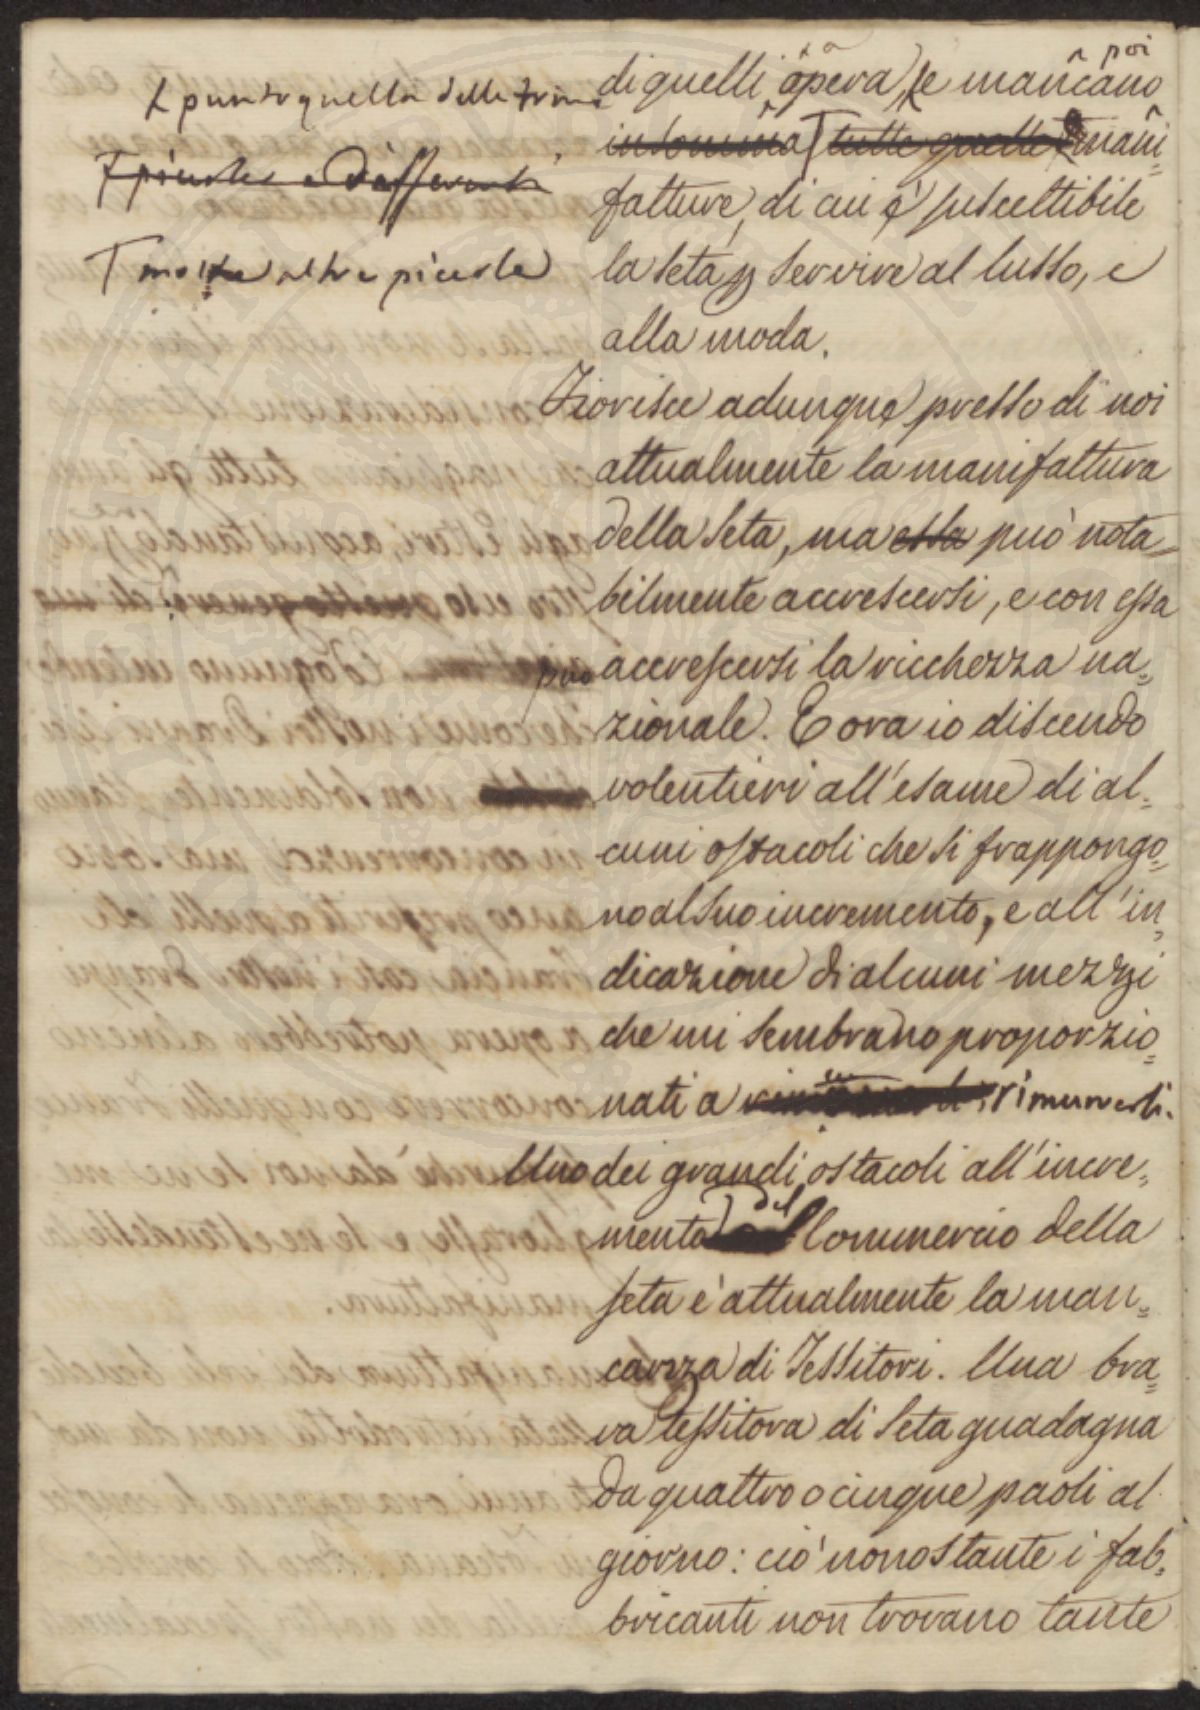 L punto quella delle trine
T piccole e differenti
T molte altre piccole
poi
di quelli, opera, e mancano
in somma tutte quelle mani=
fatture, di cui è suscettibile
la seta p servire al lusso, e
alla moda.
Fiorisce adunque presso di noi
attualmente la manifattura
della seta, ma essa può nota=
bilmente accrescersi, e con essa
può accrescersi la ricchezza na=
zionale. E ora io discendo
volentieri all'esame di al=
cuni ostacoli che si frappongo=
no al suo incremento, e all'in=
dicazione di alcuni mezzi
che mi sembrano proporzio=
nati a rimuoverli.
Uno dei grandi ostacoli all'incre=
mento del Commercio della
seta è attualmente la man=
canza di Tessitori. Una bra=
va tessitora di seta guadagna
da quattro o cinque paoli al
giorno: ciò nonostante i fab=
bricanti non trovano tante